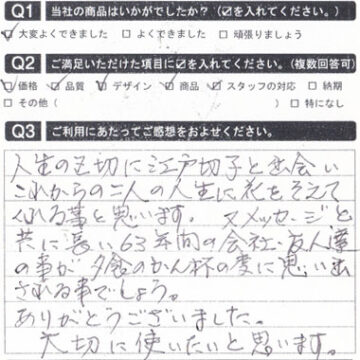 Q1 当社の商品はいかがでしたか?(☑を入れてください。)
☑ 大変よくできました □ よくできました □ 頑張りましょう
Q2 ご満足いただけた項目に☑を入れてください。(複数回答可)
☑ 価格 ☑ 品質 ☑ デザイン ☑ 商品 ☑ スタッフの対応 □ 納期
□ その他( ) □ 特になし
Q3 ご利用にあたってご感想をおよせください。
人生の区切に江戸切子と出会い
これからの二人の人生に花をそえて
くれる事と思います。又メッセージと
共に長い63年間の会社、友人達
の事が夕食のかん杯の度に思い出
される事でしょう。
ありがとうございました。
大切に使いたいと思います。